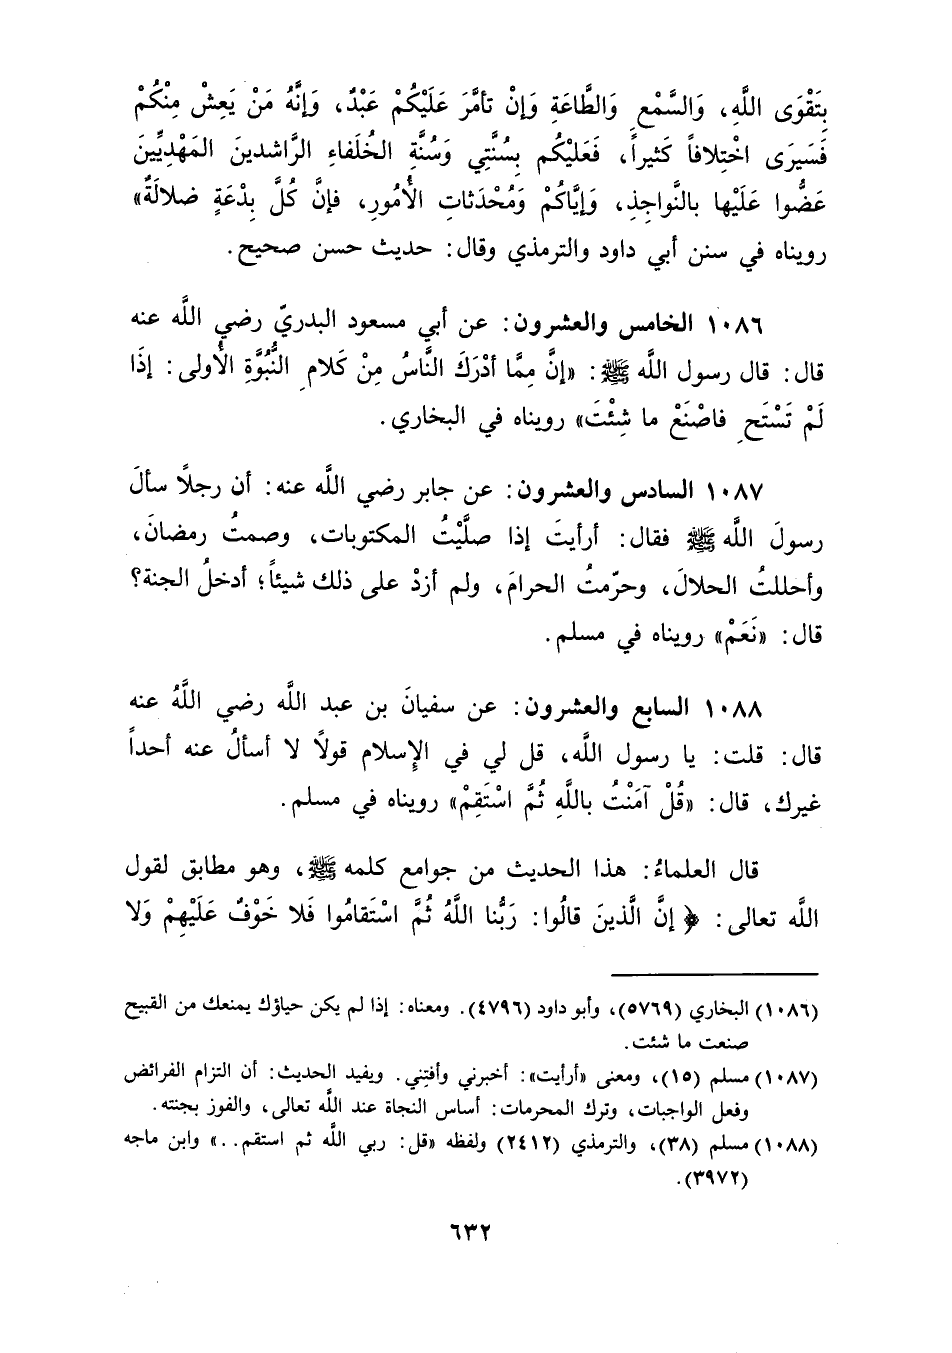 بِتَقْوَى اللَّهِ، وَالسَّمْعِ وَالطَّاعَةِ وَإِنْ تأمَّرَ عَلَيْكُمْ عَبْدٌ، وَإِنَّهُ مَنْ يَعِشْ مِنْكُمْ
فَسَيَرَى اخْتِلافاً كَثيراً، فَعَليْكُم بِسُنَّتِي وَسُنَّةِ الخُلَفاءِ الرَّاشدينَ المَهْدِيِّينَ
عَضُّوا عَلَيْها بالنَّواجِذِ، وَإيَّاكُمْ وَمُحْدَثاتِ الأُمُورِ، فإنَّ كُلَّ بِدْعَةٍ ضلالَةٌ»
رويناه في سنن أبي داود والترمذي وقال: حديث حسن صحيح.
١٠٨٦ الخامس والعشرون: عن أبي مسعود البدريّ رضي اللَّه عنه
قال: قال رسول اللَّه ﷺ: «إنَّ مِمَّا أدْرَكَ النَّاسُ مِنْ كَلامِ النُّبُوَّةِ الأُولى: إذَا
لَمْ تَسْتَحِ فاصْنَعْ ما شِئْتَ» رويناه في البخاري.
١٠٨٧ السادس والعشرون: عن جابر رضي اللَّه عنه: أن رجلاً سألَ
رسولَ اللَّه ﷺ فقال: أرأيتَ إذا صلَّيْتُ المكتوبات، وصمتُ رمضانَ،
وأحللتُ الحلالَ، وحرّمتُ الحرامَ، ولم أزدْ على ذلك شيئاً؛ أدخلُ الجنة؟
قال: «نَعَمْ» رويناه في مسلم.
١٠٨٨ السابع والعشرون: عن سفيانَ بن عبد اللَّه رضي اللَّهُ عنه
قال: قلت: يا رسول اللَّه، قل لي في الإسلام قولاً لا أسألُ عنه أحداً
غيرك، قال: «قُلْ آمَنْتُ باللَّهِ ثُمَّ اسْتَقِمْ» رويناه في مسلم.
قال العلماءُ: هذا الحديث من جوامع كلمه ﷺ، وهو مطابق لقول
اللَّه تعالى: ﴿إنَّ الَّذينَ قالُوا: رَبُّنا اللَّهُ ثُمَّ اسْتَقامُوا فَلا خَوْفٌ عَلَيْهِمْ وَلا
(١٠٨٦) البخاري (٥٧٦٩)، وأبو داود (٤٧٩٦). ومعناه: إذا لم يكن حياؤك يمنعك من القبيح
صنعت ما شئت.
(١٠٨٧) مسلم (١٥)، ومعنى «أرأيت»: أخبرني وأفتِني. ويفيد الحديث: أن التزام الفرائض
وفعل الواجبات، وترك المحرمات: أساس النجاة عند اللَّه تعالى، والفوز بجنته.
(١٠٨٨) مسلم (٣٨)، والترمذي (٢٤١٢) ولفظه «قل: ربي اللَّه ثم استقم..» وابن ماجه
(٣٩٧٢).
٦٣٢